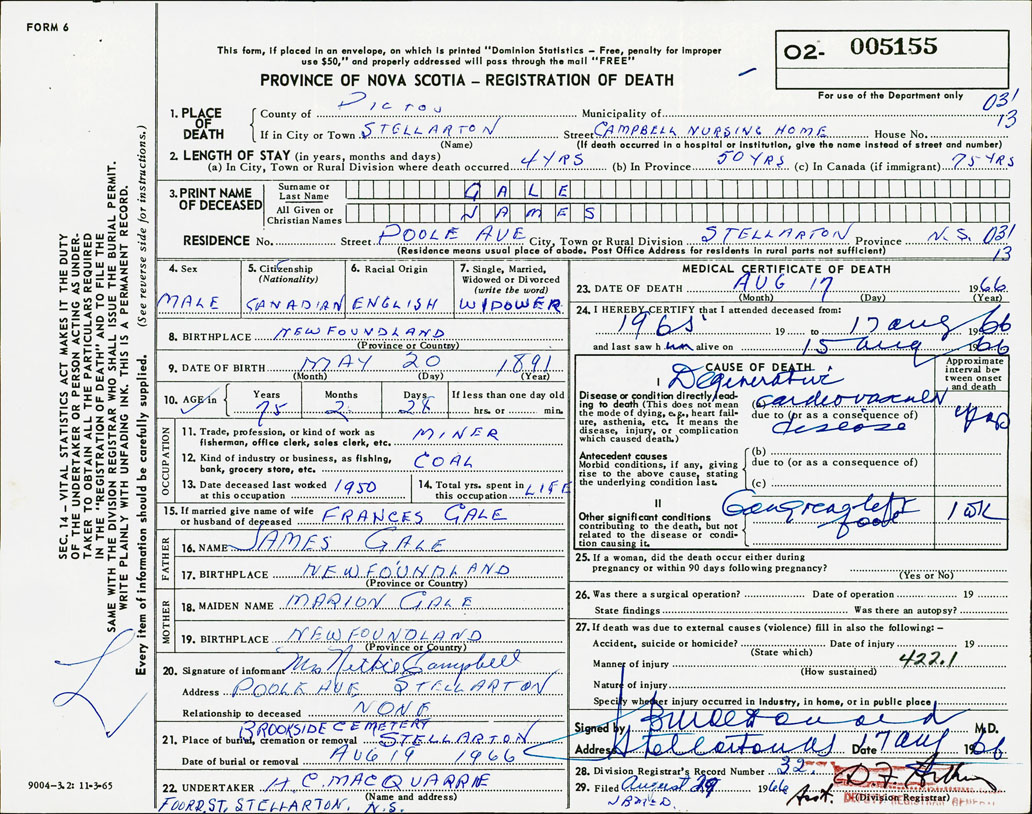 FORM 6
This form, if placed in an envelope, on which is printed "Dominion Statistics – Free, penalty for improper
use $50," and properly addressed will pass through the mail "FREE"
PROVINCE OF NOVA SCOTIA – REGISTRATION OF DEATH
O2- 005155
For use of the Department only
031
13
1. PLACE OF DEATH
County of PICTOU Municipality of
If in City or Town STELLARTON Street CAMPBELL NURSING HOME House No.
(Name) (If death occurred in a hospital or institution, give the name instead of street and number)
2. LENGTH OF STAY (in years, months and days)
(a) In City, Town or Rural Division where death occurred 4 YRS (b) In Province 50 YRS (c) In Canada (if immigrant) 75 YRS
3. PRINT NAME OF DECEASED
Surname or Last Name GALE
All Given or Christian Names JAMES
RESIDENCE No. Street POOLE AVE City, Town or Rural Division STELLARTON Province N.S. 031
(Residence means usual place of abode. Post Office Address for residents in rural parts not sufficient) 13
4. Sex
MALE
5. Citizenship
(Nationality)
CANADIAN
6. Racial Origin
ENGLISH
7. Single, Married,
Widowed or Divorced
(write the word)
WIDOWER
8. BIRTHPLACE NEWFOUNDLAND
(Province or Country)
9. DATE OF BIRTH MAY 20 1891
(Month) (Day) (Year)
10. AGE in Years Months Days If less than one day old
75 2 28 hrs. or min.
OCCUPATION
11. Trade, profession, or kind of work as
fisherman, office clerk, sales clerk, etc. MINER
12. Kind of industry or business, as fishing,
bank, grocery store, etc. COAL
13. Date deceased last worked
at this occupation 1950
14. Total yrs. spent in
this occupation LIFE
15. If married give name of wife
or husband of deceased FRANCES GALE
FATHER
16. NAME JAMES GALE
17. BIRTHPLACE NEWFOUNDLAND
(Province or Country)
MOTHER
18. MAIDEN NAME MARION GALE
19. BIRTHPLACE NEWFOUNDLAND
(Province or Country)
20. Signature of informant Mrs Campbell
Address POOLE AVE STELLARTON
Relationship to deceased NONE
BROOKSIDE CEMETERY
21. Place of burial, cremation or removal STELLARTON
Date of burial or removal AUG 19 1966
22. UNDERTAKER H.C. MACQUARRIE
(Name and address)
FOORD ST, STELLARTON, N.S.
MEDICAL CERTIFICATE OF DEATH
23. DATE OF DEATH AUG 17 1966
(Month) (Day) (Year)
24. I HEREBY CERTIFY that I attended deceased from:
1965 19 to 17 aug 1966
and last saw him alive on 15 aug 1966
CAUSE OF DEATH
Approximate
interval be-
tween onset
and death
I
Disease or condition directly lead-
ing to death (This does not mean
the mode of dying, e.g., heart fail-
ure, asthenia, etc. It means the
disease, injury, or complication
which caused death.)
Degenerative
(a) cardiovascular
due to (or as a consequence of)
disease
Antecedent causes
Morbid conditions, if any, giving
rise to the above cause, stating
the underlying condition last.
(b)
due to (or as a consequence of)
(c)
II
Other significant conditions
contributing to the death, but not
related to the disease or condi-
tion causing it.
left
foot
1 wk
25. If a woman, did the death occur either during
pregnancy or within 90 days following pregnancy?
(Yes or No)
26. Was there a surgical operation? Date of operation 19
State findings Was there an autopsy?
27. If death was due to external causes (violence) fill in also the following: –
Accident, suicide or homicide? Date of injury 19
(State which)
Manner of injury 422.1
(How sustained)
Nature of injury
Specify whether injury occurred in industry, in home, or in public place
Signed by M.D.
Address Stellarton NS Date 17 aug 1966
28. Division Registrar's Record Number 32
29. Filed August 29 1966
Asst.
(Division Registrar)
SEC. 14 – VITAL STATISTICS ACT MAKES IT THE DUTY
OF THE UNDERTAKER OR PERSON ACTING AS UNDER-
TAKER TO OBTAIN ALL THE PARTICULARS REQUIRED
IN THE "REGISTRATION OF DEATH" AND TO FILE THE
SAME WITH THE DIVISION REGISTRAR WHO SHALL ISSUE THE BURIAL PERMIT.
WRITE PLAINLY WITH UNFADING INK. THIS IS A PERMANENT RECORD.
Every item of information should be carefully supplied. (See reverse side for instructions.)
9004–3.2: 11-3-65